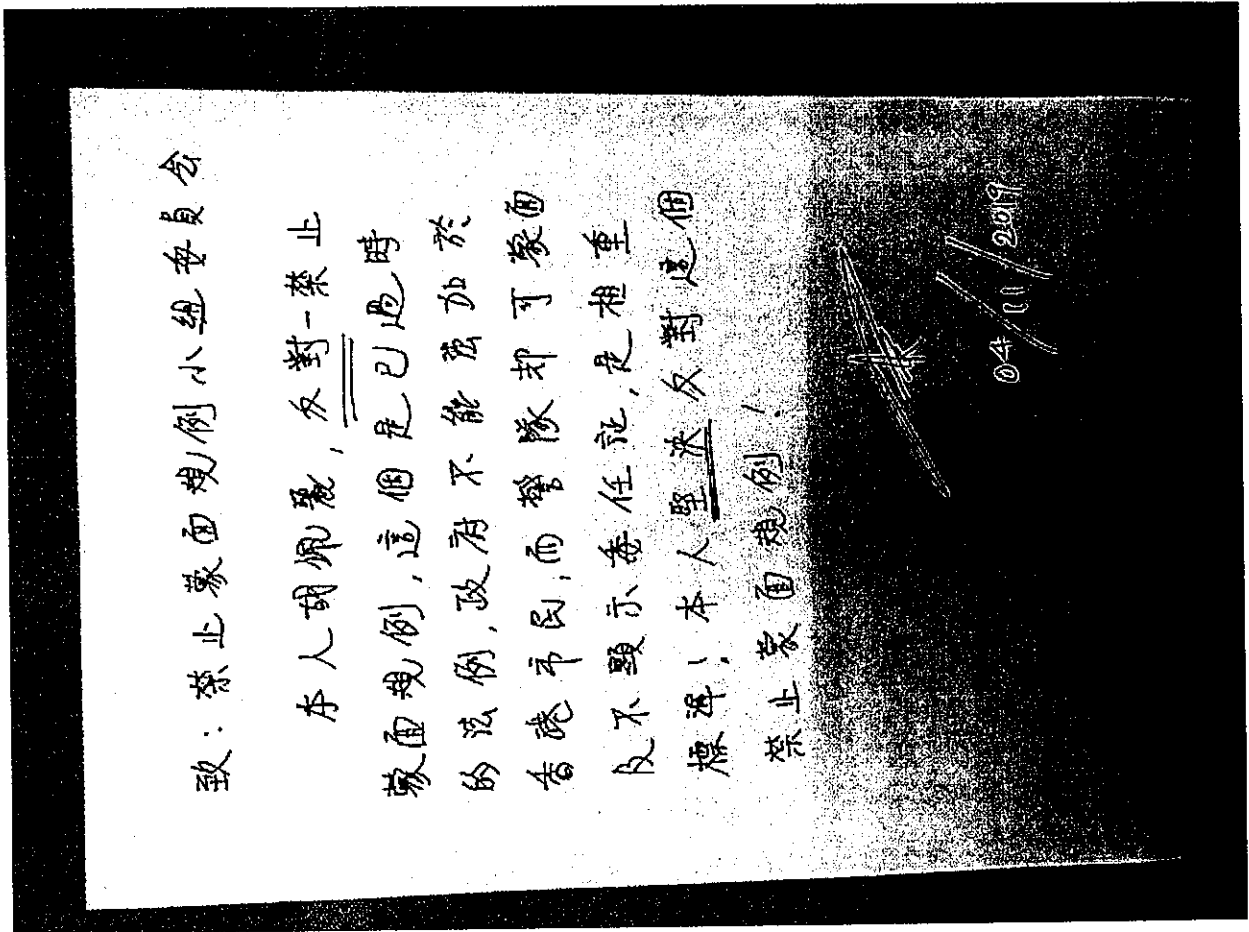 致：禁止蒙面規例小組委員会
本人胡佩麗，反對一禁止
蒙面規例，這個是已過時
的法例，政府不能強加於
香港市民，而警隊却可蒙面
及不顯示委任証，是相重
標準！本人堅決反對這個
禁止蒙面規例！
04/11/2019